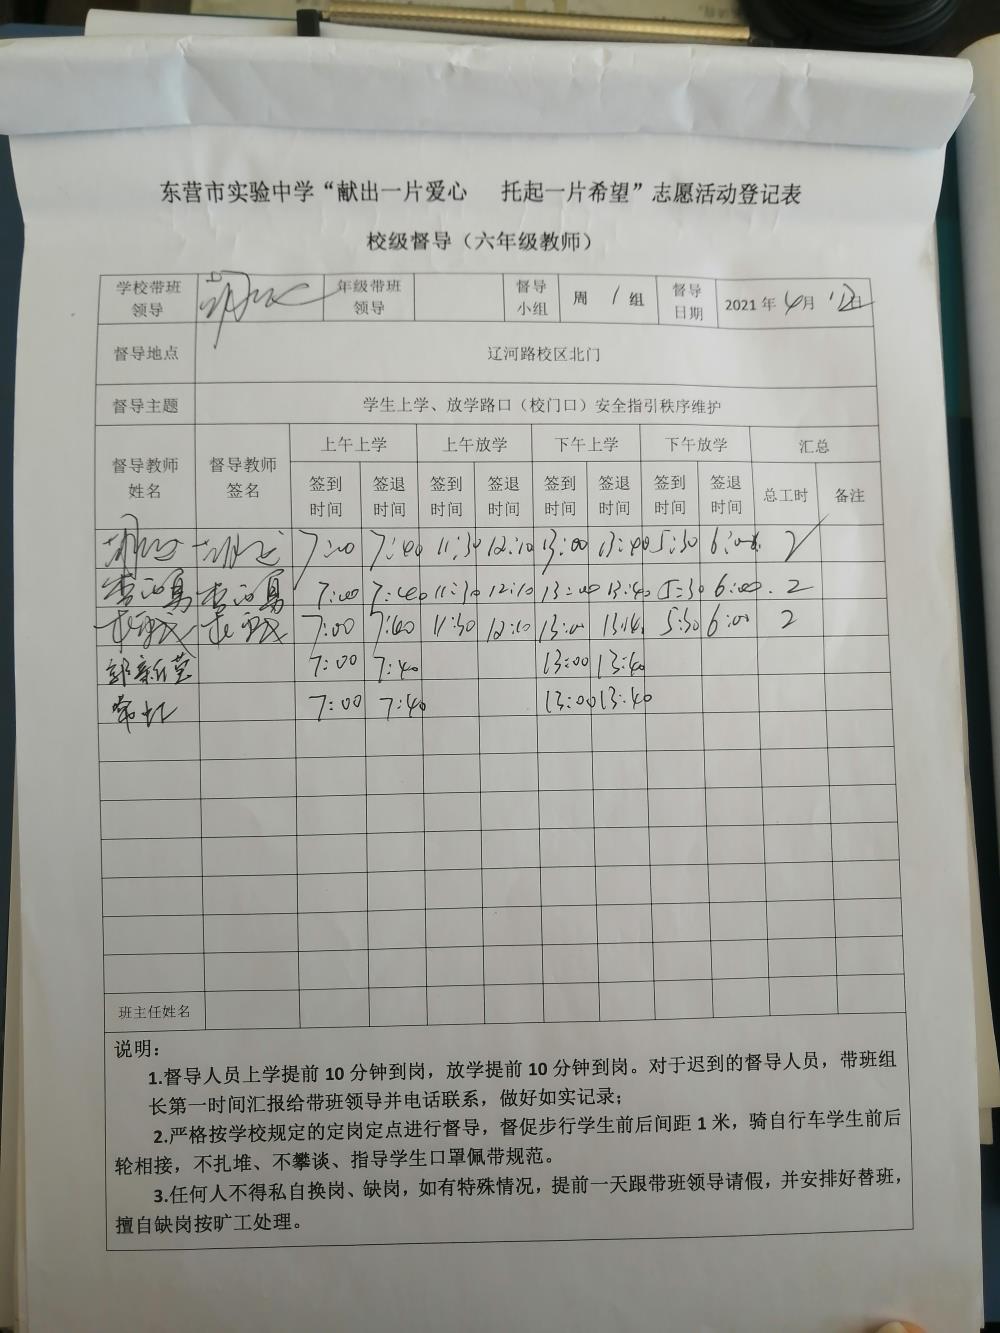 东营市实验中学“献出一片爱心 托起一片希望”志愿活动登记表
校级督导（六年级教师）
学校带班领导 年级带班领导 督导小组 周 1 组 督导日期 2021 年 4 月 12 日
督导地点 辽河路校区北门
督导主题 学生上学、放学路口（校门口）安全指引秩序维护
督导教师姓名 督导教师签名 上午上学 上午放学 下午上学 下午放学 汇总
签到时间 签退时间 签到时间 签退时间 签到时间 签退时间 签到时间 签退时间 总工时 备注
7:00 7:40 11:30 12:10 13:00 13:40 5:30 6:00 2
7:00 7:40 11:30 12:10 13:00 13:40 5:30 6:00 2
7:00 7:40 11:30 12:10 13:00 5:30 6:00 2
郭新莹 7:00 7:40 13:00 13:40
常虹 7:00 7:40 13:00 13:40
班主任姓名
说明：
1.督导人员上学提前 10 分钟到岗，放学提前 10 分钟到岗。对于迟到的督导人员，带班组
长第一时间汇报给带班领导并电话联系，做好如实记录；
2.严格按学校规定的定岗定点进行督导，督促步行学生前后间距 1 米，骑自行车学生前后
轮相接，不扎堆、不攀谈、指导学生口罩佩带规范。
3.任何人不得私自换岗、缺岗，如有特殊情况，提前一天跟带班领导请假，并安排好替班，
擅自缺岗按旷工处理。